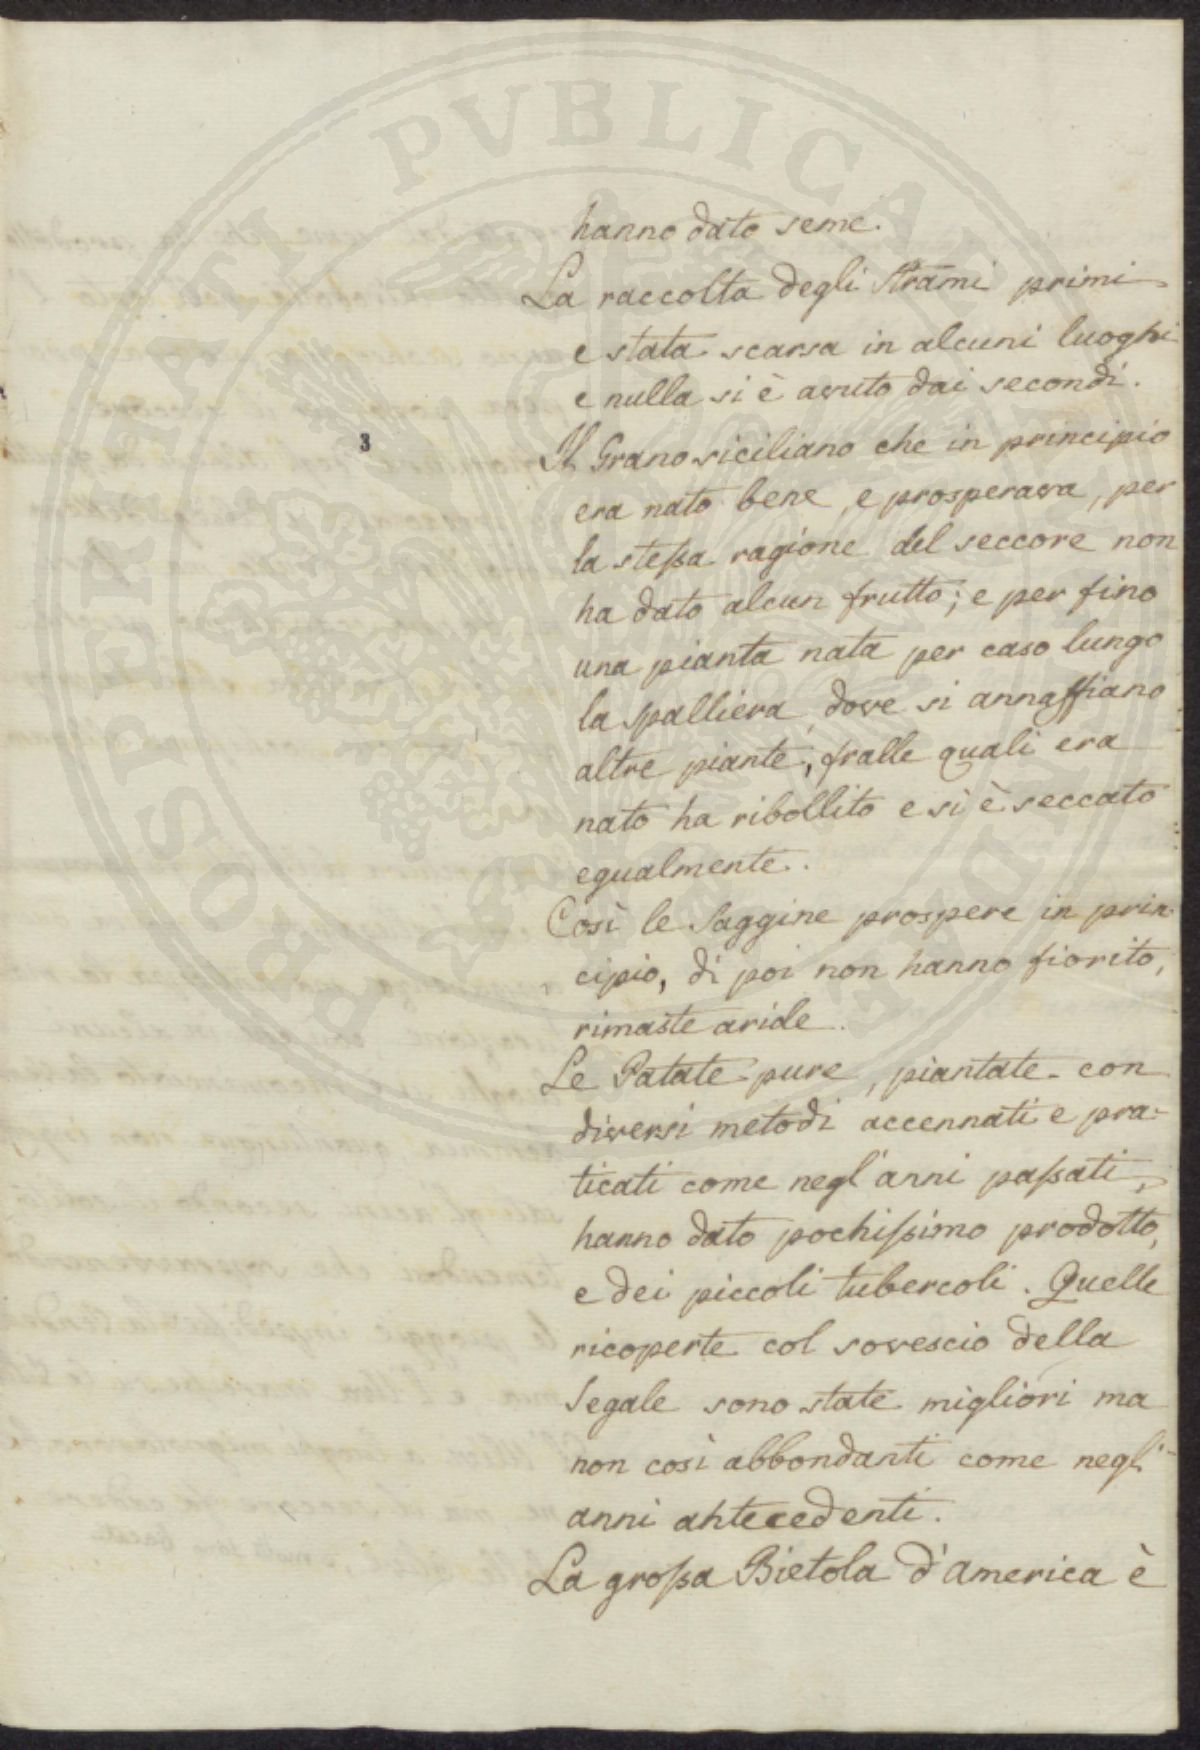 PROSPERITATI PVBLICAE
hanno dato seme.
La raccolta degli Strami primi
e stata scarsa in alcuni luoghi
e nulla si è avuto dai secondi.
3
Il Grano siciliano che in principio
era nato bene, e prosperava, per
la steſsa ragione del seccore non
ha dato alcun frutto; e per fino
una pianta nata per caso lungo
la spalliera, dove si annaffiano
altre piante, fralle quali era
nato ha ribollito e si è seccato
egualmente.
Così le Saggine prospere in prin-
cipio, di poi non hanno fiorito,
rimaste aride.
Le Patate pure, piantate con
diversi metodi accennati e pra-
ticati come negl'anni paſsati,
hanno dato pochiſsimo prodotto,
e dei piccoli tubercoli. Quelle
ricoperte col sovescio della
Segale sono state migliori ma
non così abbondanti come negl'
anni antecedenti.
La groſsa Bietola d'America è